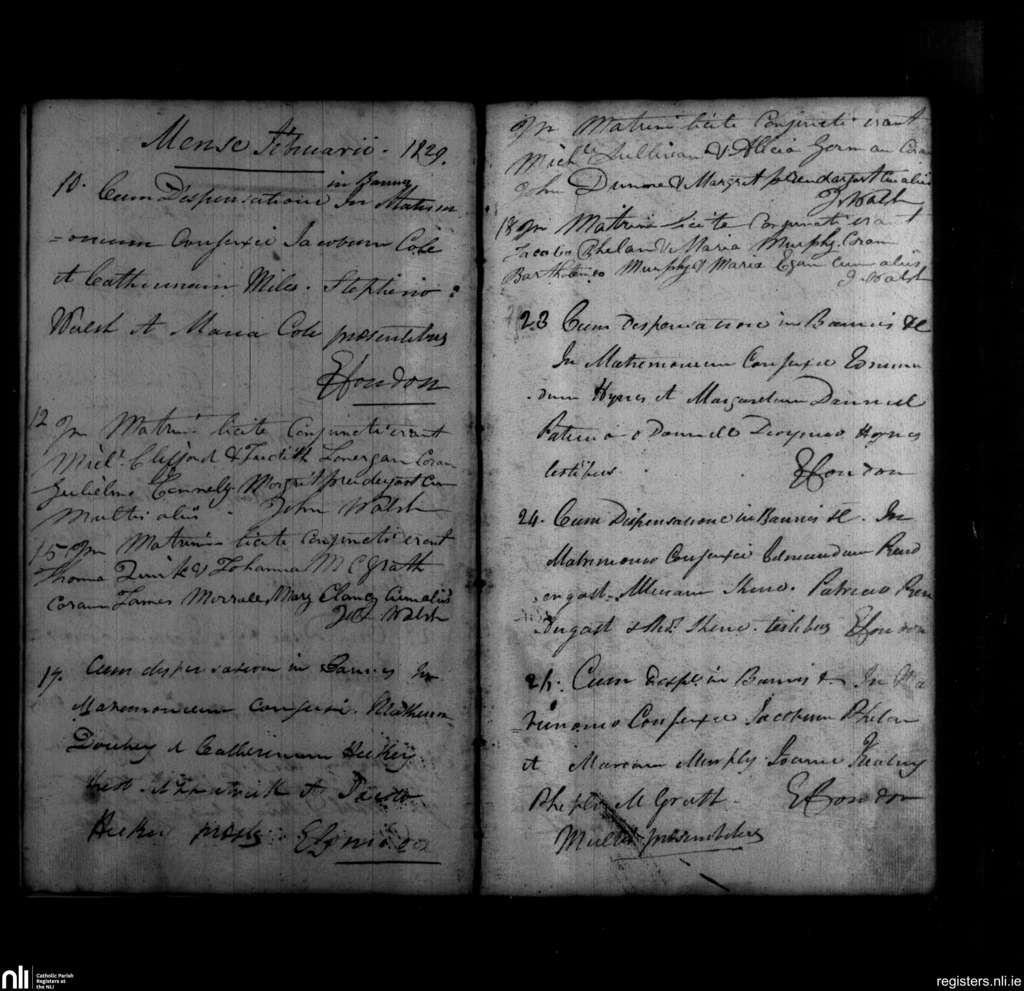 Mense Februarii. 1829.
10. Cum Dispensatione in Bannis In Matrim
=onium Conjunxi Jacobum Cole
et Catherinam Miles. Stephino:
Walsh et Maria Cole præsentibus
ECondon
12 In Matrim licite Conjuncti erant
Michl. Clifford & Judith Lonergan Coram
Gulielmo Kennely Margrit prendergast Cum
Multis aliis. John Walsh
15 In Matrim licite Conjuncti erant
Thoma Quirk & Johanna McGrath
Coram James Mary Clancy Cumaliis
Jo Walsh
19. Cum dispensatione in Bannis In
Matremonium Conjunxi.
et Catherinam Hickey
et
Hickey ECondon
In Matrim licite Conjuncti erant
Michl Sullivan & Alicia Gorman Coram
John & Margrit prendergast Cu aliis
J Walsh
18 In Matrim licite Conjuncti erant
Jacobo Phelan & Maria Murphy. Coram
Murphy & Maria Egan Cum aliis
J Walsh
23 Cum Dispensatione in Bannis &c
In Matremonium Conjunxi Edmun
dum Hynes et Margaretam Dannel
Patricio o Dannell Hynes
testibus. ECondon
24. Cum Dispensatione in Bannis &c. In
Matrimonio Conjunxi Edmundum Pend
ergast. Patricio Pen
dergast & testibus ECondon
Cum in Bannis & In Ma
trimonio Conjunxi Jacobum Phelan
et Mariam Murphy. Joanne Kealing
McGrath. ECondon
Multis præsentibus
nli
Catholic Parish
Registers at
the NLI
registers.nli.ie